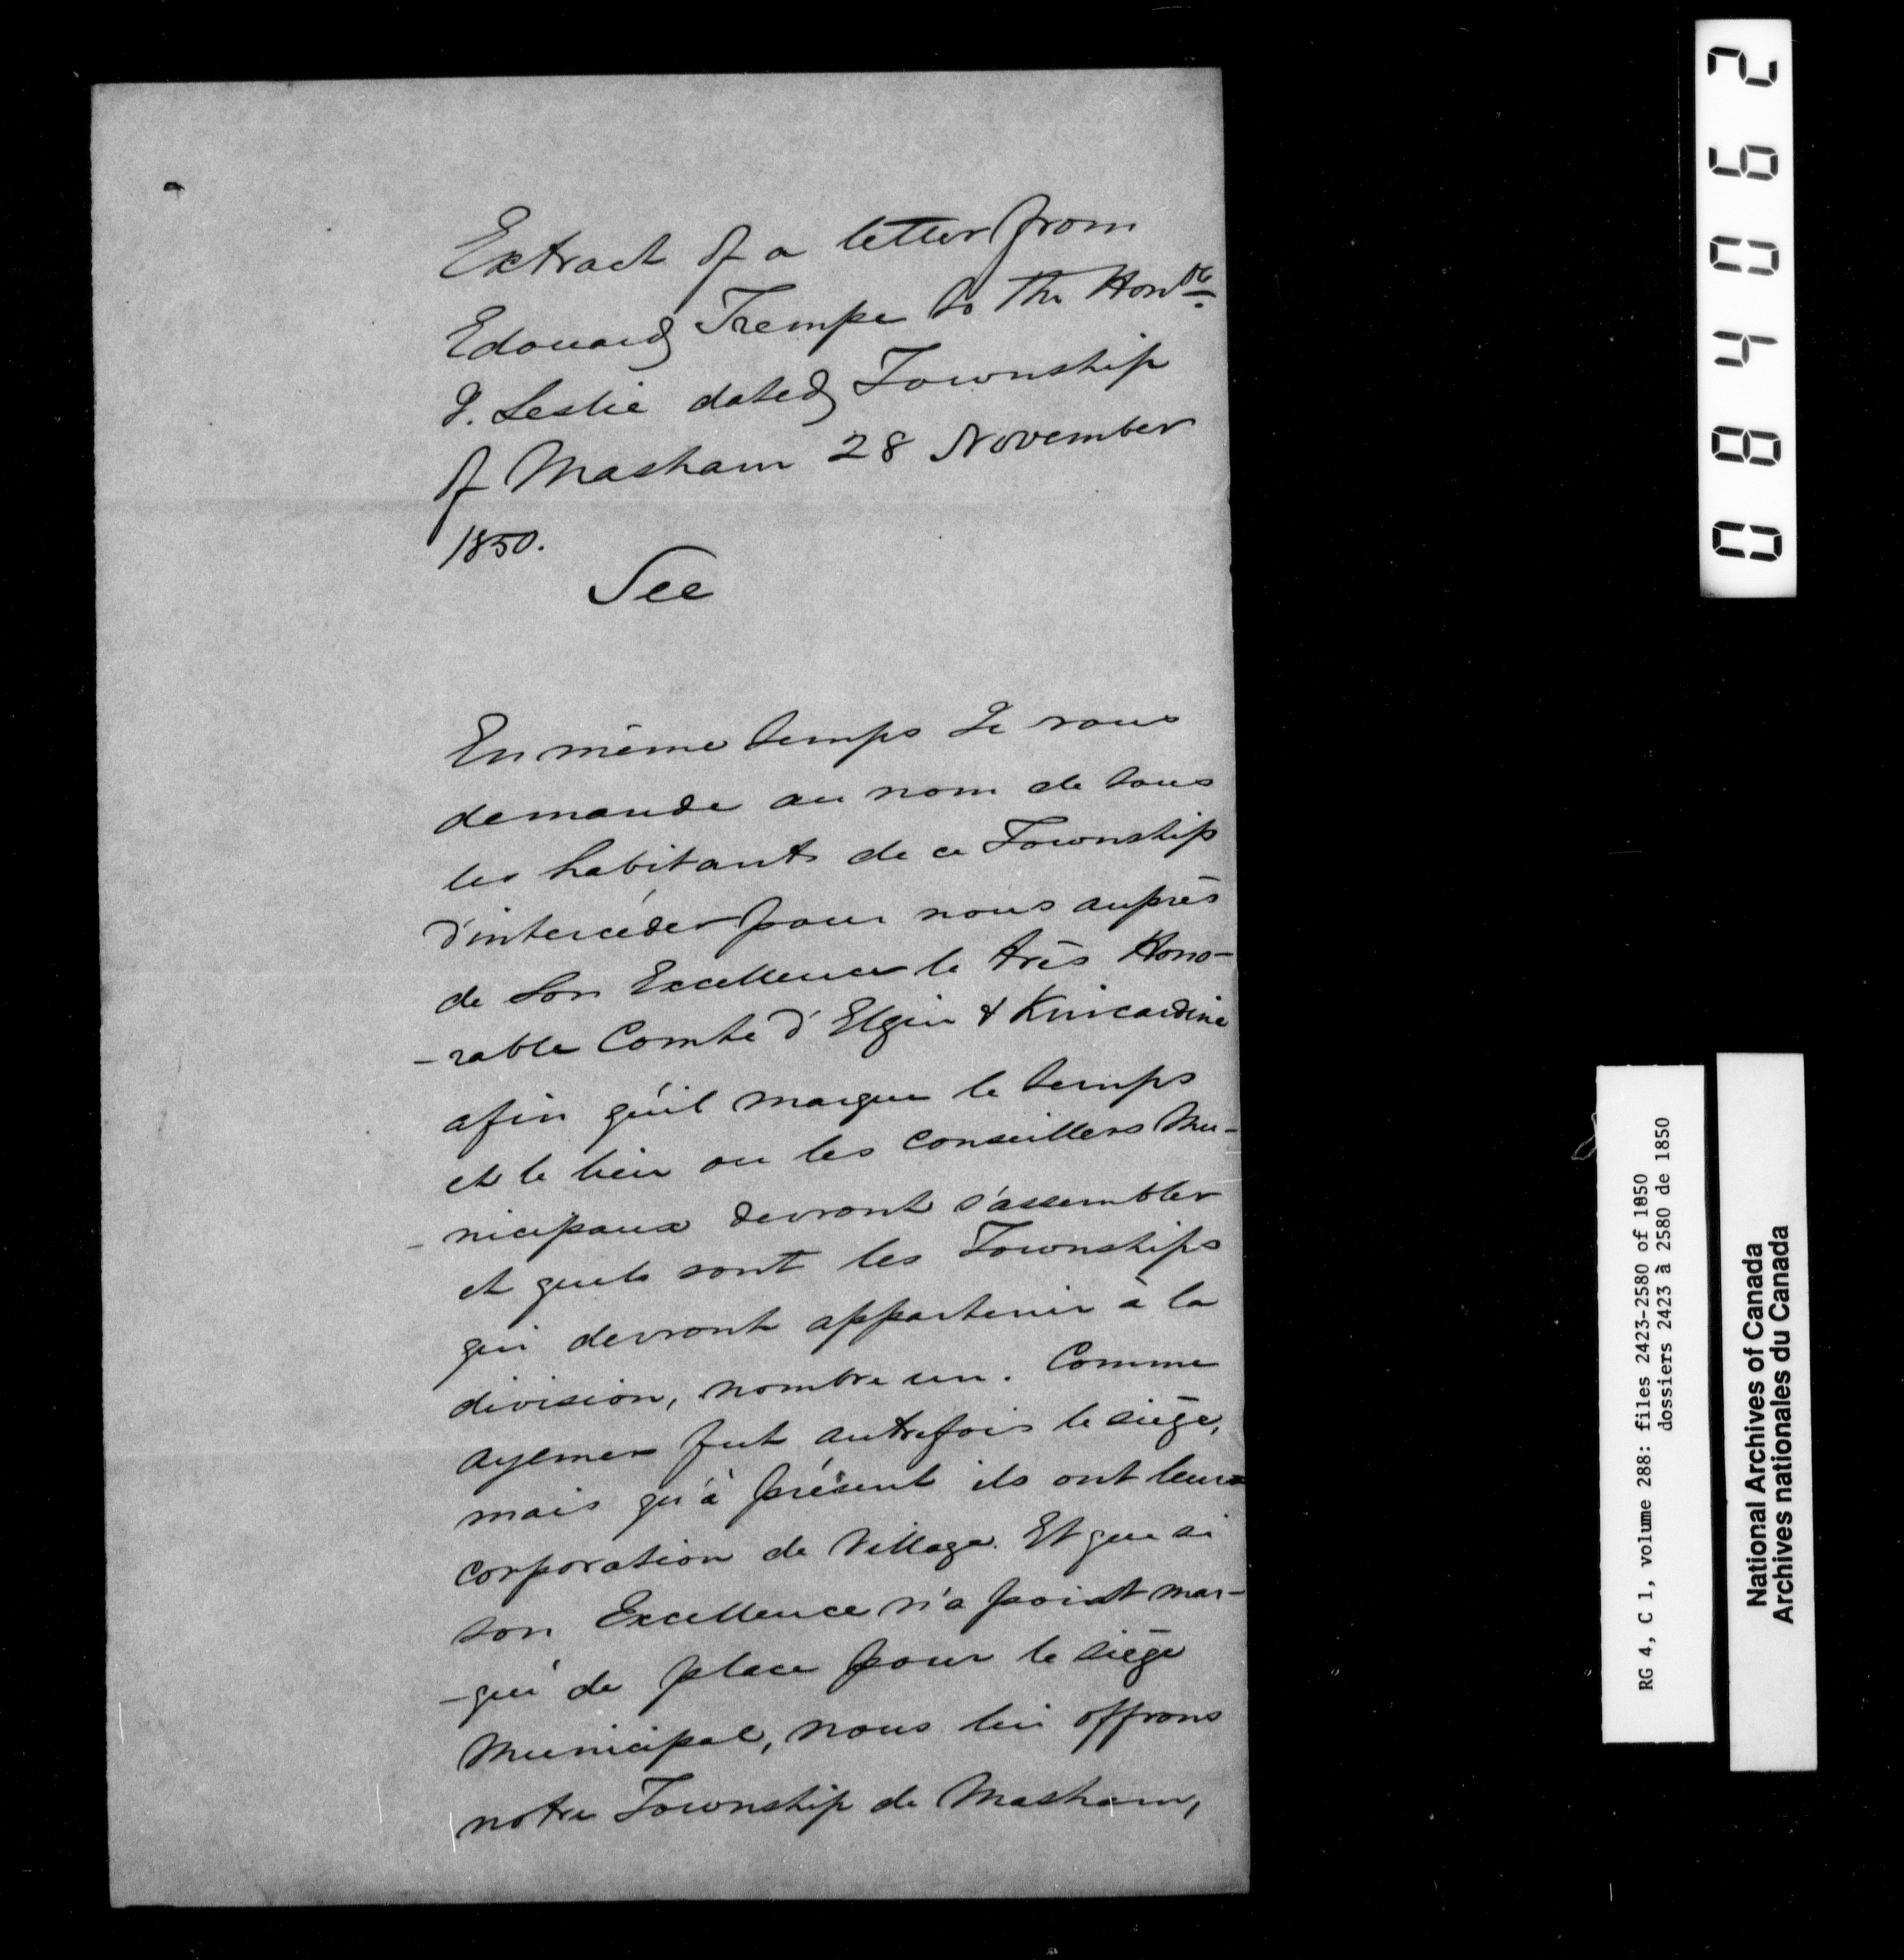 Extract of a letter from
Edouard Trempe to the Honble
J. Leslie dated Township
of Masham 28 November
1850.
See
En même temps Je vous
demande au nom de tous
les habitants de ce Township
d'intercéder pour nous auprès
de Son Excellence le très Hono-
-rable Comte d'Elgin & Kincardine
afin qu'il marque le temps
et le lieu ou les Conseillers Mu-
-nicipaux devront s'assembler
et quels sont les Townships
qui devront appartenir à la
division, nombre un. Comme
aylmer fut autrefois le siège,
mais qu'à présent ils ont leurs
corporation de Village. Et que si
son Excellence n'a point mar-
-qué de place pour le siège
Municipal, nous lui offrons
notre Township de Masham,
084062
RG 4, C 1, volume 288: files 2423-2580 of 1850
dossiers 2423 à 2580 de 1850
National Archives of Canada
Archives nationales du Canada